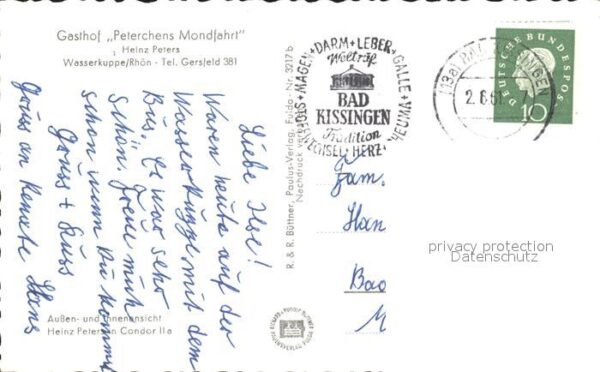 Gasthof „Peterchens Mondfahrt"
Heinz Peters
Wasserkuppe/Rhön - Tel. Gersfeld 381
Liebe Ilse!
Waren heute auf der
Wasserkuppe mit dem
Bus. Es war sehr
schön. Freue mich
schon wenn Du kommst
Gruss + Kuss
Hans
Gruss an Renate
Außen- und Innenansicht
Heinz Peters an Condor II a
R. & R. Büttner, Paulus-Verlag, Fulda
Nr. 3217 b
Nachdruck verb
MAGEN + DARM + LEBER + GALLE +
HERZ
Weltruf
BAD
KISSINGEN
Tradition
(13a) BAD KISSINGEN
2.6.61
DEUTSCHE BUNDESPOST
10
Fam.
Han
Bad
privacy protection
Datenschutz